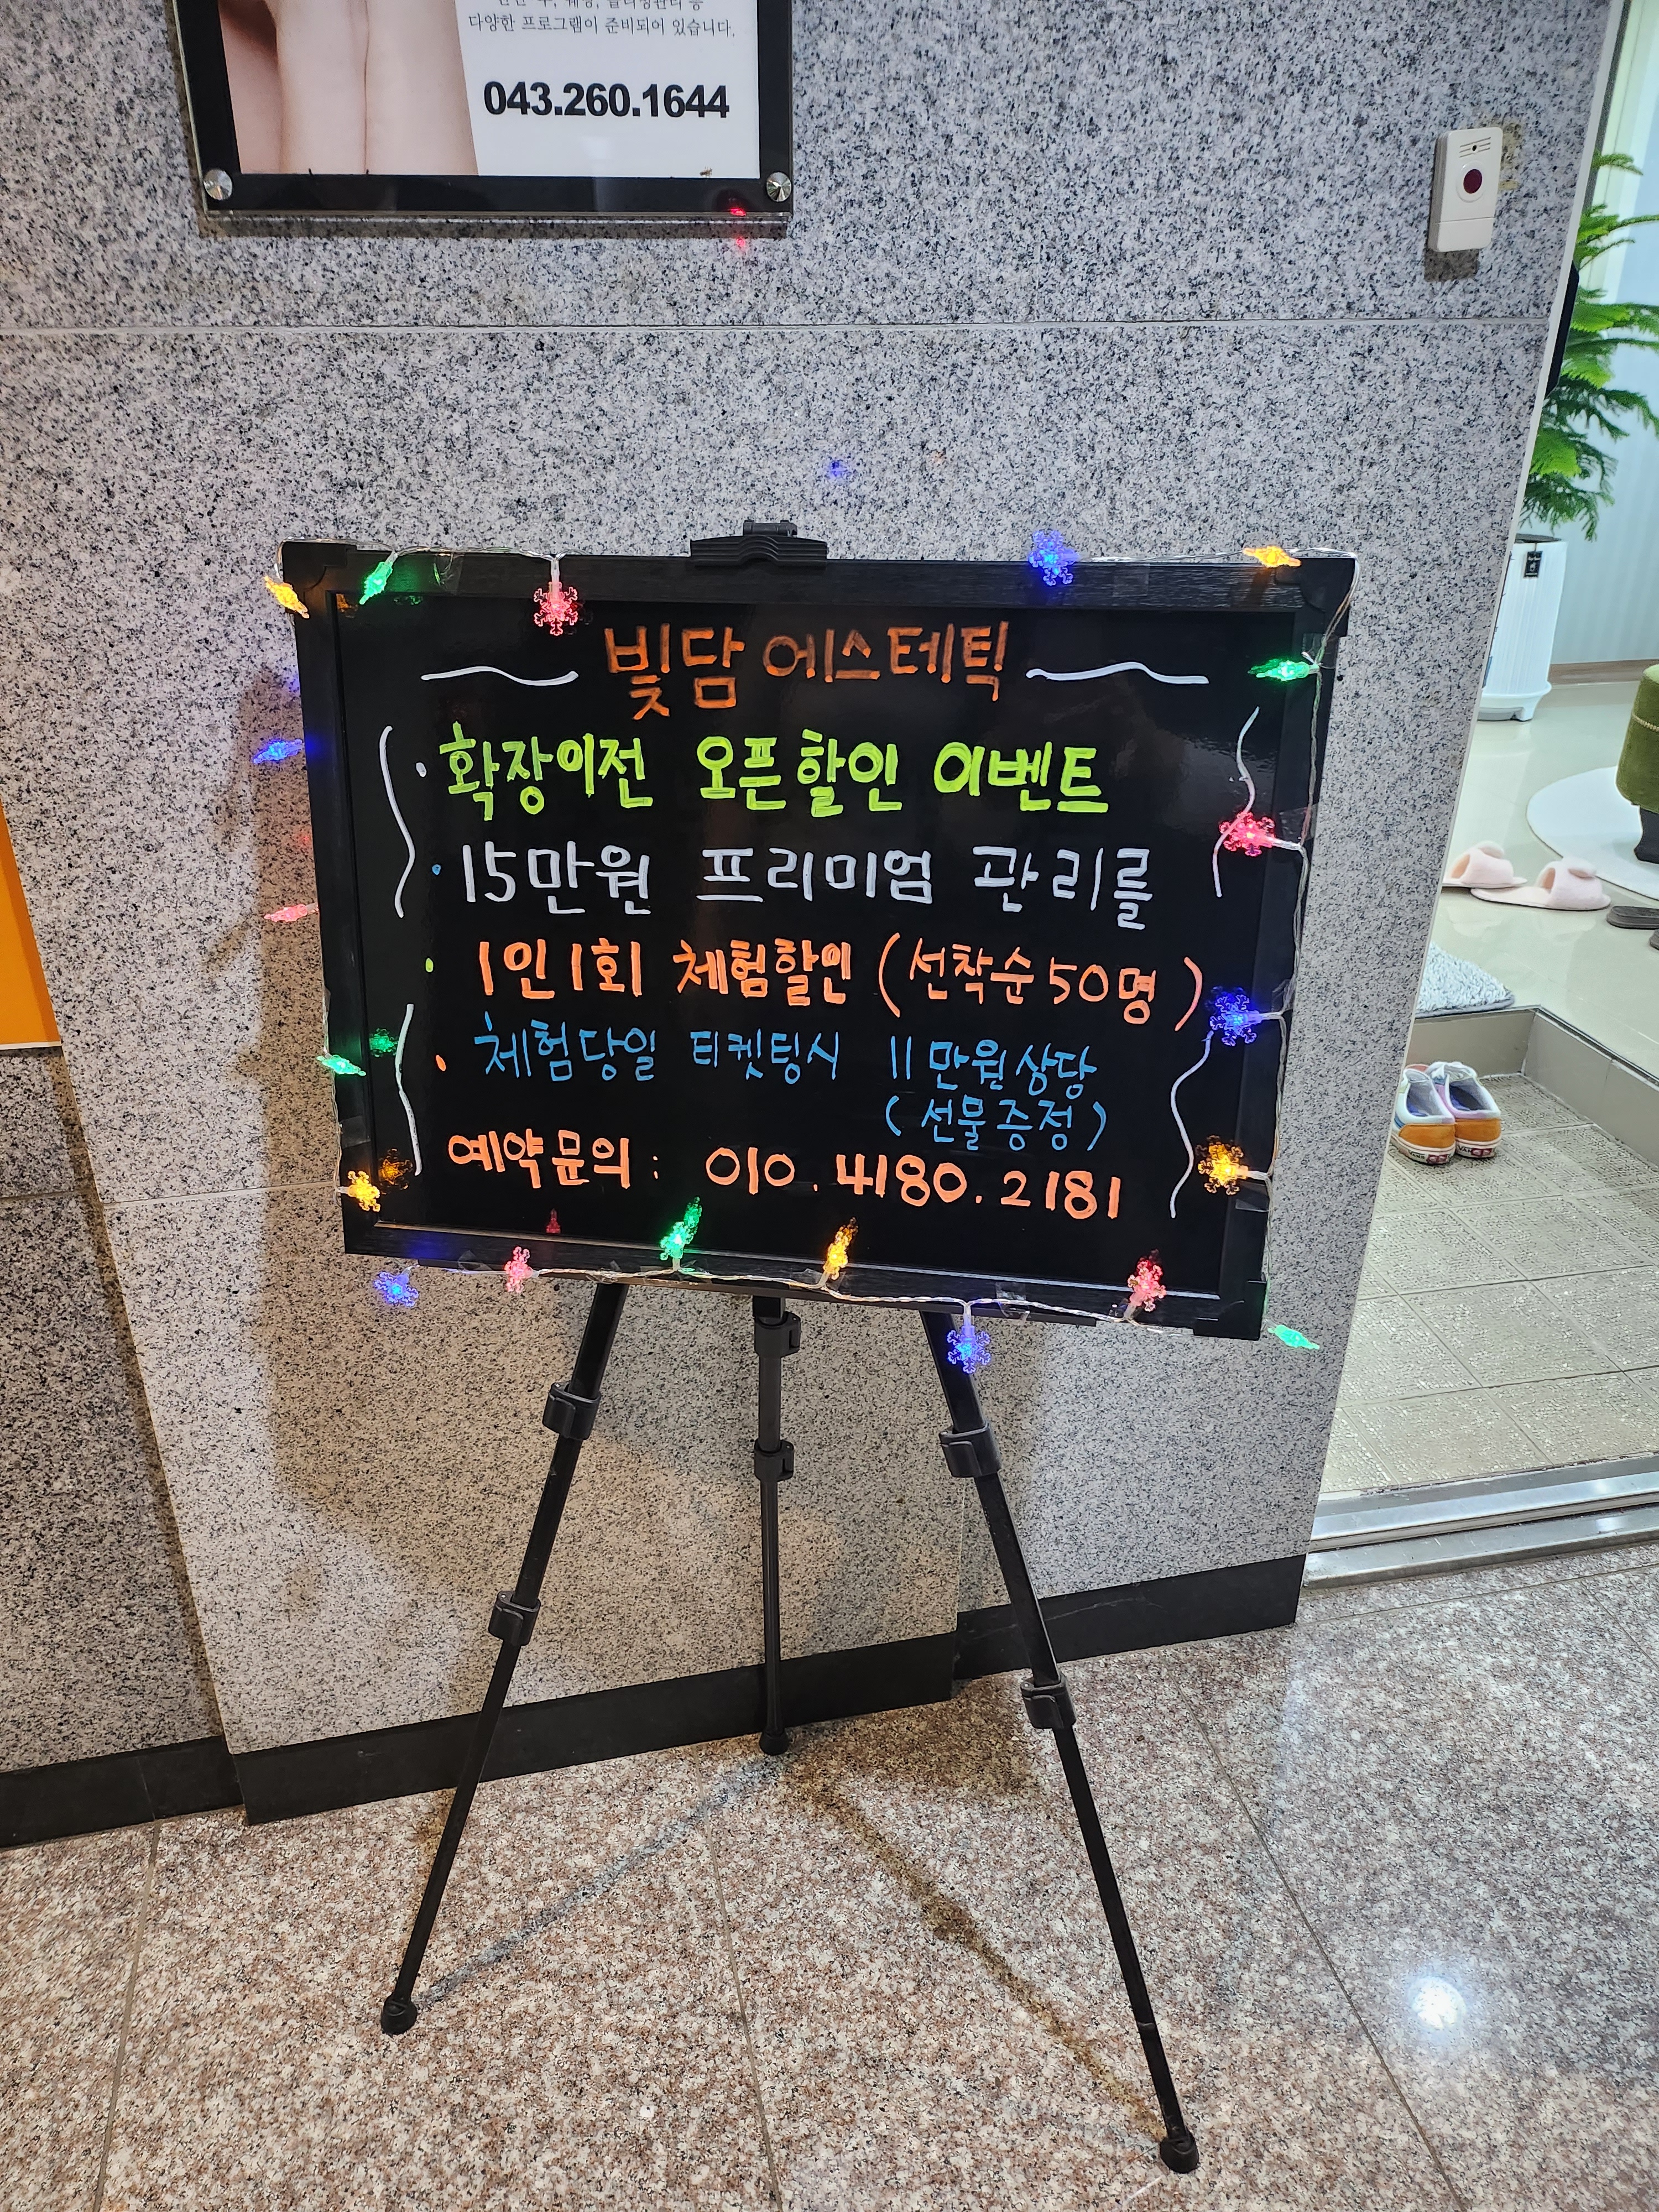 다양한 프로그램이 준비되어 있습니다.
043.260.1644
빛담 에스테틱
확장이전 오픈할인 이벤트
15만원 프리미엄 관리를
1인1회 체험할인 (선착순 50명)
체험당일 티켓팅시 11만원상당
(선물증정)
예약문의 : 010.4180.2181